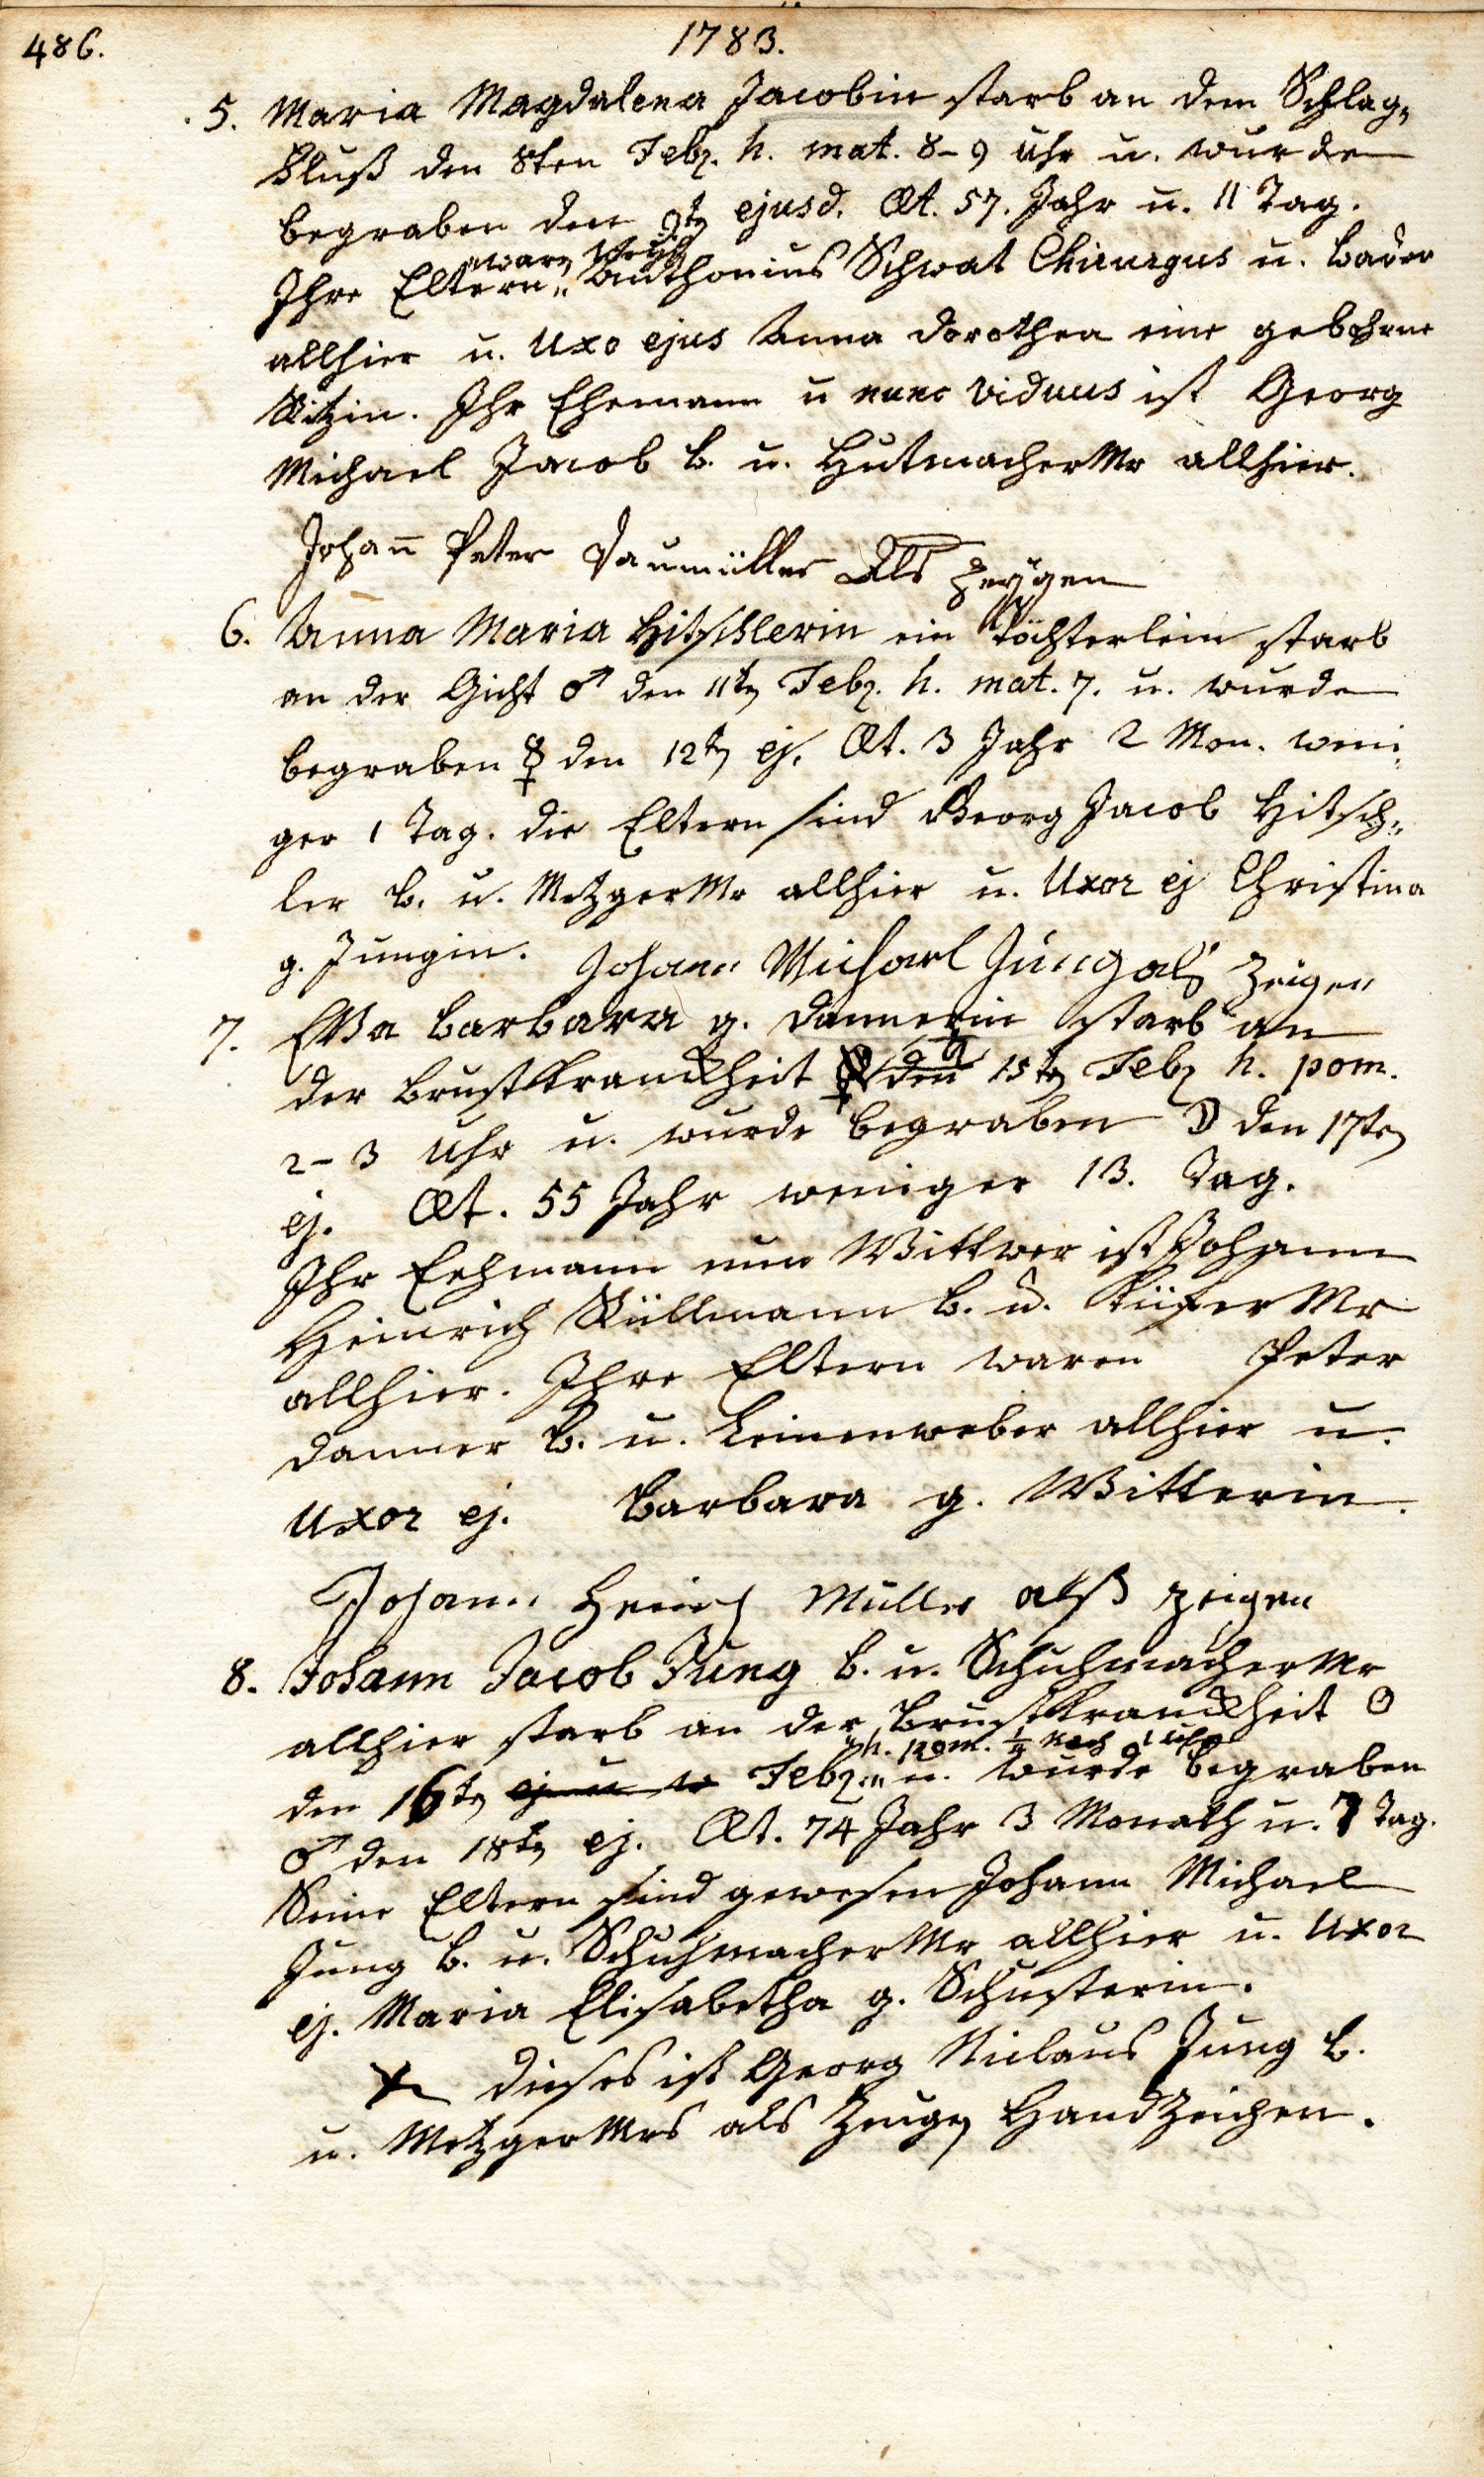 486.
1783.
5. Maria Magdalena Jacobin starb an dem Schlag„
Fluß den 8ten Febr. h. mat. 8-9 Uhr u. wurde
begraben den 9ten ejusd. Æt. 57. Jahr u. 11 Tag.
waren
Ihre Eltern„ Anthonius Schwat Chirurgus u. Bader
allhier u. Uxo ejus Anna Dorothea eine gebohrne
Kitzin. Ihr Ehemann u nunc viduus ist Georg
Michael Jacob B. u. HutmacherMr allhier.
Johañ Peter Daumüller Als Zeygen
6. Anna Maria Hitschlerin ein Töchterlein starb
an der Gicht ♂ den 11ten Febr. h. mat. 7. u. wurde
begraben ☿ den 12ten ej. Æt. 3 Jahr 2 Mon. weni„
ger 1 Tag. die Eltern sind Georg Jacob Hitsch„
ler B. u. MetzgerMr allhier u. Uxor ej Christina
g. Jungin. Johann Michael Jung als Zeigen
7. Eva Barbara g. Dannerin starb an
der Brustkranckheit ♄ den 15ten Febr h. pom.
2-3 Uhr u. wurde begraben ☽ den 17ten
ej. Æt. 55 Jahr weniger 13. Tag.
Ihr Eehmann nun Wittwer ist Johann
Heinrich Küllmann B. u. Küfer Mr
allhier. Ihre Eltern waren Peter
Danner B. u. Leinenweber allhier u.
Uxor ej. Barbara g. Witterin.
Johann Heinrich Müller alß zeigen
8. Johann Jacob Jung B. u. Schuhmacher Mr
allhier starb an der Brustkranckheit ☉
h. pom. ¼ nach 1 Uhr
den 16ten Febr.„ u. wurde begraben
♂ den 18ten ej. Æt. 74 Jahr 3 Monath u. 7 Tag.
Seine Eltern sind gewesen Johann Michael
Jung B. u. SchuhmacherMr allhier u. Uxor
ej. Maria Elisabetha g. Schusterin.
dieses ist Georg Niclaus Jung B.
u. MetzgerMrs als Zeugen HandZeichen.